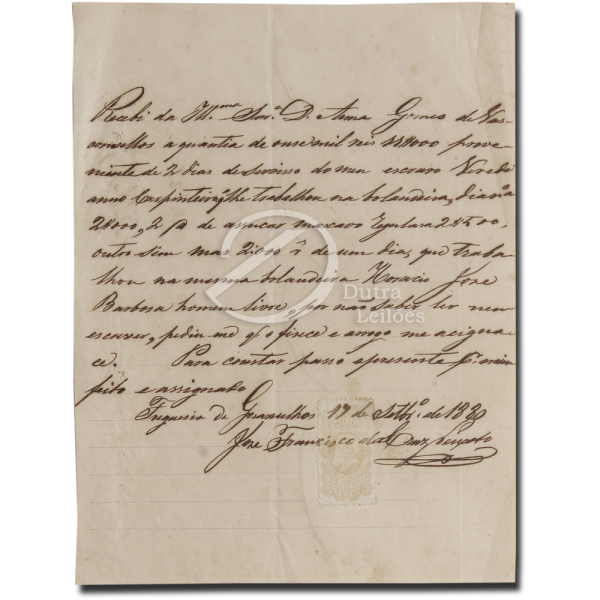 Recebi da Illma Snra. D. Anna Gomes de Vas-
consellos a quantia de onse mil reis 11#000 prove-
niente de 2 dias de servisso do meu escravo
anno Carpinteiro q lhe trabalhou na bolandeira, diaria
2#000, 2 @ de assucar mascavo 2#500,
outro sim mais 2#000 r de um dia, que traba-
lhou na mesma bolandeira Horacio Jose
Barbosa homem livre, por não saber ler nem
escrever, pediu me q o fisece e a rogo me acigna-
ce. Para constar passo e presente pr mim
feito e assignado
Freguesia de Guarulhos 17 de Setbro. de 1880
Jose Francisco da Cruz
Dutra
Leilões